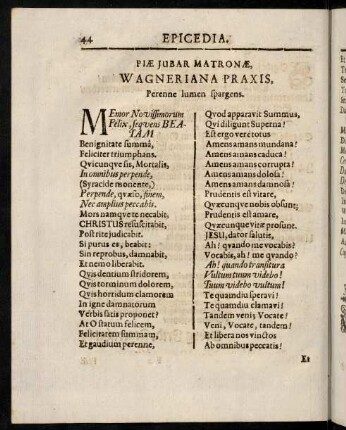 44 EPICEDIA.
PIÆ JUBAR MATRONÆ,
WAGNERIANA PRAXIS,
Perenne lumen spargens.
MEmor Novissimorum
Felix, sequens BEA-
TAM
Benignitate summâ,
Feliciter triumphans.
Qvicunqve sis, Mortalis,
In omnibus perpende,
(Syracide monente,)
Perpende, qvæso, finem,
Nec amplius peccabis.
Mors namqve te necabit,
CHRISTUS resuscitabit,
Post rite judicabit.
Si purus es, beabit:
Sin reprobus, damnabit,
Et nemo liberabit.
Qvis dentium stridorem,
Qvis torminum dolorem,
Qvis horridum clamorem
In igne damnatorum
Verbis satis proponet?
At O statum felicem,
Felicitatem summam,
Et gaudium perenne,
Qvod apparavit Summus,
Qvi diligunt Superna!
Est ergo verè totus
Amens amans mundana!
Amens amans caduca!
Amens amans corrupta!
Amens amans dolosa!
Amens amans damnosa!
Prudentis est vitare,
Qvæcunqve nobis obsunt;
Prudentis est amare,
Qvæcunqve vitæ prosunt.
JESU, dator salutis,
Ah! qvando me vocabis?
Vocabis, ah! me qvando?
Ah! quando transitura
Vultum tuum videbo!
Tuum videbo vultum!
Te qvamdiu speravi!
Te qvamdiu clamavi!
Tandem veni; Vocate!
Veni, Vocate, tandem!
Et libera nos vinctos
Ab omnibus peccatis!
Ex